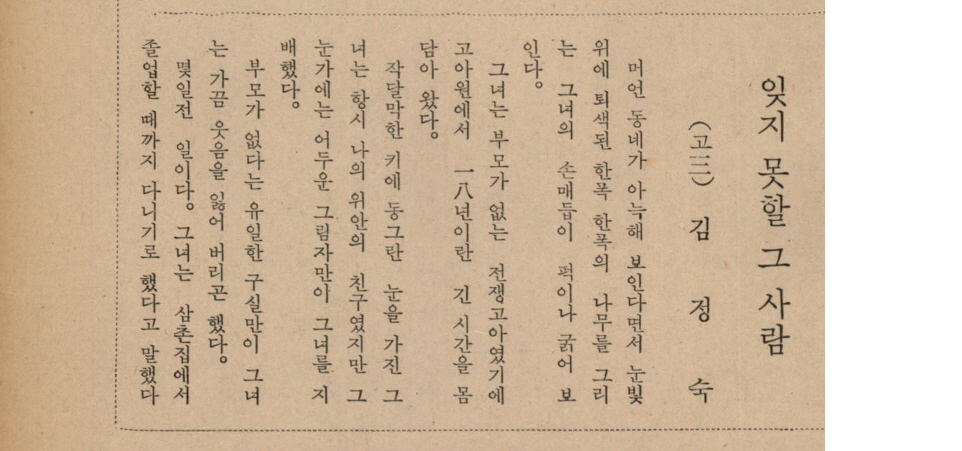 잊지 못할 그 사람
(고三) 김 정 숙
머언 동네가 아늑해 보인다면서 눈빛
위에 퇴색된 한폭 한폭의 나무를 그리
는 그녀의 손매듭이 퍽이나 굵어 보
인다。
그녀는 부모가 없는 전쟁고아였기에
고아원에서 一八년이란 긴 시간을 몸
담아 왔다。
작달막한 키에 동그란 눈을 가진 그
녀는 항시 나의 위안의 친구였지만 그
눈가에는 어두운 그림자만이 그녀를 지
배했다。
부모가 없다는 유일한 구실만이 그녀
는 가끔 웃음을 잃어 버리곤 했다。
몇일전 일이다。그녀는 삼촌집에서
졸업할 때까지 다니기로 했다고 말했다